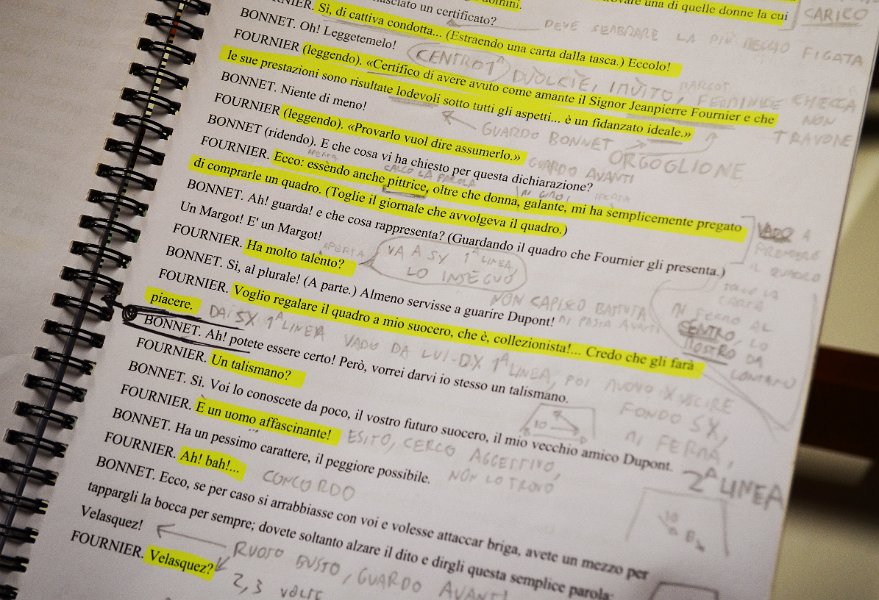 rovare una di quelle donne la cui
uomini.
CARICO
lasciato un certificato?
DEVE SEMBRARE LA PIÙ MEGLIO FIGATA
FOURNIER. Sì, di cattiva condotta... (Estraendo una carta dalla tasca.) Eccolo!
BONNET. Oh! Leggetemelo!
CENTRO 1ª
FOURNIER (leggendo). «Certifico di avere avuto come amante il Signor Jeanpierre Fournier e che
le sue prestazioni sono risultate lodevoli sotto tutti gli aspetti... è un fidanzato ideale.»
CHECCA
NON
TRAVONE
BONNET. Niente di meno!
GUARDO BONNET
ORGOGLIONE
FOURNIER (leggendo). «Provarlo vuol dire assumerlo.»
GUARDO AVANTI
BONNET (ridendo). E che cosa vi ha chiesto per questa dichiarazione?
CALCO LA PAROLA
MI GIRO
FOURNIER. Ecco: essendo anche pittrice, oltre che donna, galante, mi ha semplicemente pregato
di comprarle un quadro. (Toglie il giornale che avvolgeva il quadro.)
VADO A
PRENDERE
IL QUADRO
BONNET. Ah! guarda! e che cosa rappresenta? (Guardando il quadro che Fournier gli presenta.)
Un Margot! E' un Margot!
APERTA
FOURNIER. Ha molto talento?
VA A SX 1ª LINEA
LO INSEGUO
BONNET. Sì, al plurale! (A parte.) Almeno servisse a guarire Dupont!
NON CAPISCO BATTUTA
MI FERMO AL
CENTRO
LO
MOSTRO DA
LONTANO
FOURNIER. Voglio regalare il quadro a mio suocero, che è, collezionista!... Credo che gli farà
piacere.
DA SX 1ª LINEA
VADO DA LUI-DX 1ª LINEA, POI MUOVO X USCIRE
FONDO SX,
MI FERMA,
2ª LINEA
BONNET. Ah! potete essere certo! Però, vorrei darvi io stesso un talismano.
FOURNIER. Un talismano?
BONNET. Sì. Voi lo conoscete da poco, il vostro futuro suocero, il mio vecchio amico Dupont.
IO
FOURNIER. È un uomo affascinante!
ESITO, CERCO AGGETTIVO,
NON LO TROVO
BONNET. Ha un pessimo carattere, il peggiore possibile.
FOURNIER. Ah! bah!...
CONCORDO
IO
B
BONNET. Ecco, se per caso si arrabbiasse con voi e volesse attaccar briga, avete un mezzo per
tappargli la bocca per sempre; dovete soltanto alzare il dito e dirgli questa semplice parola:
Velasquez!
RUOTO BUSTO, GUARDO AVANTI
FOURNIER. Velasquez?
2, 3 VOLTE